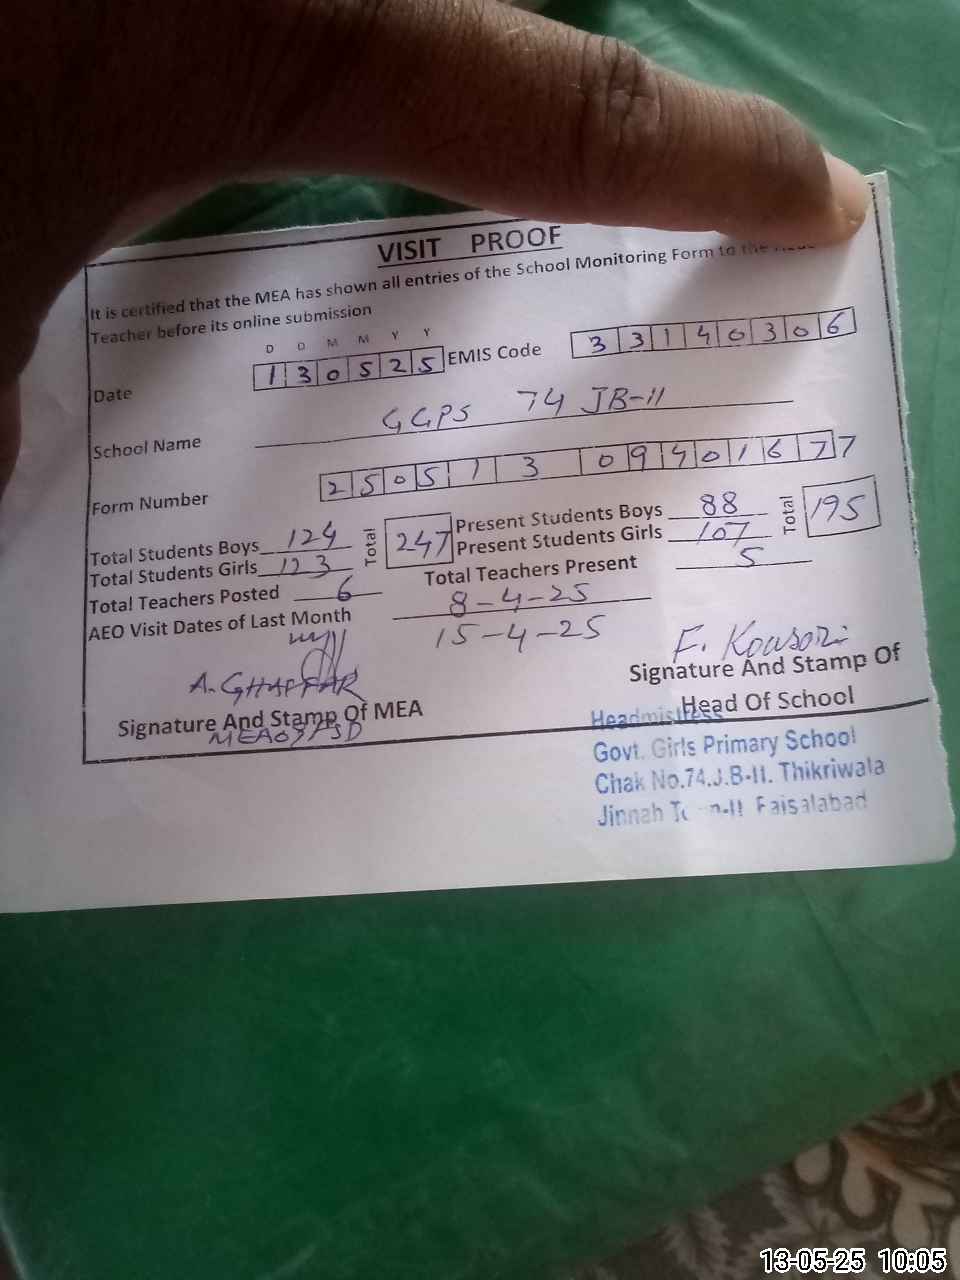 VISIT PROOF
It is certified that the MEA has shown all entries of the School Monitoring Form to the
Teacher before its online submission
D D M M Y Y
Date 130525 EMIS Code 33140306
School Name GGPS 74 JB-II
Form Number 2505130940167 7
Total Students Boys 124 Total 247 Present Students Boys 88 Total 195
Total Students Girls 123 Present Students Girls 107
Total Teachers Posted 6 Total Teachers Present 5
AEO Visit Dates of Last Month 8-4-25
15-4-25
A. GHAFFAR F. Kousar
Signature And Stamp Of MEA Signature And Stamp Of
Head Of School
MEA09FSD
Headmistress
Govt. Girls Primary School
Chak No.74.J.B-II. Thikriwala
Jinnah Faisalabad
13-05-25 10:05